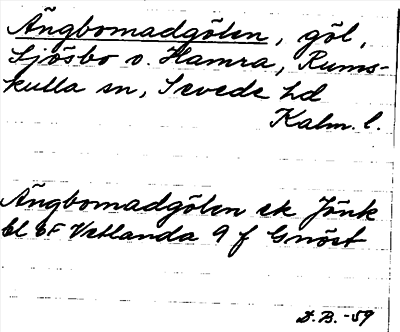 Ängbomadgölen, göl,
Sjösbo v. Hamra, Rums-
kulla sn, Sevede hd
Kalm. l.
Ängbomadgölen ek Jönk
bl 6F Vetlanda 9 f Gnöst
D.B. -59